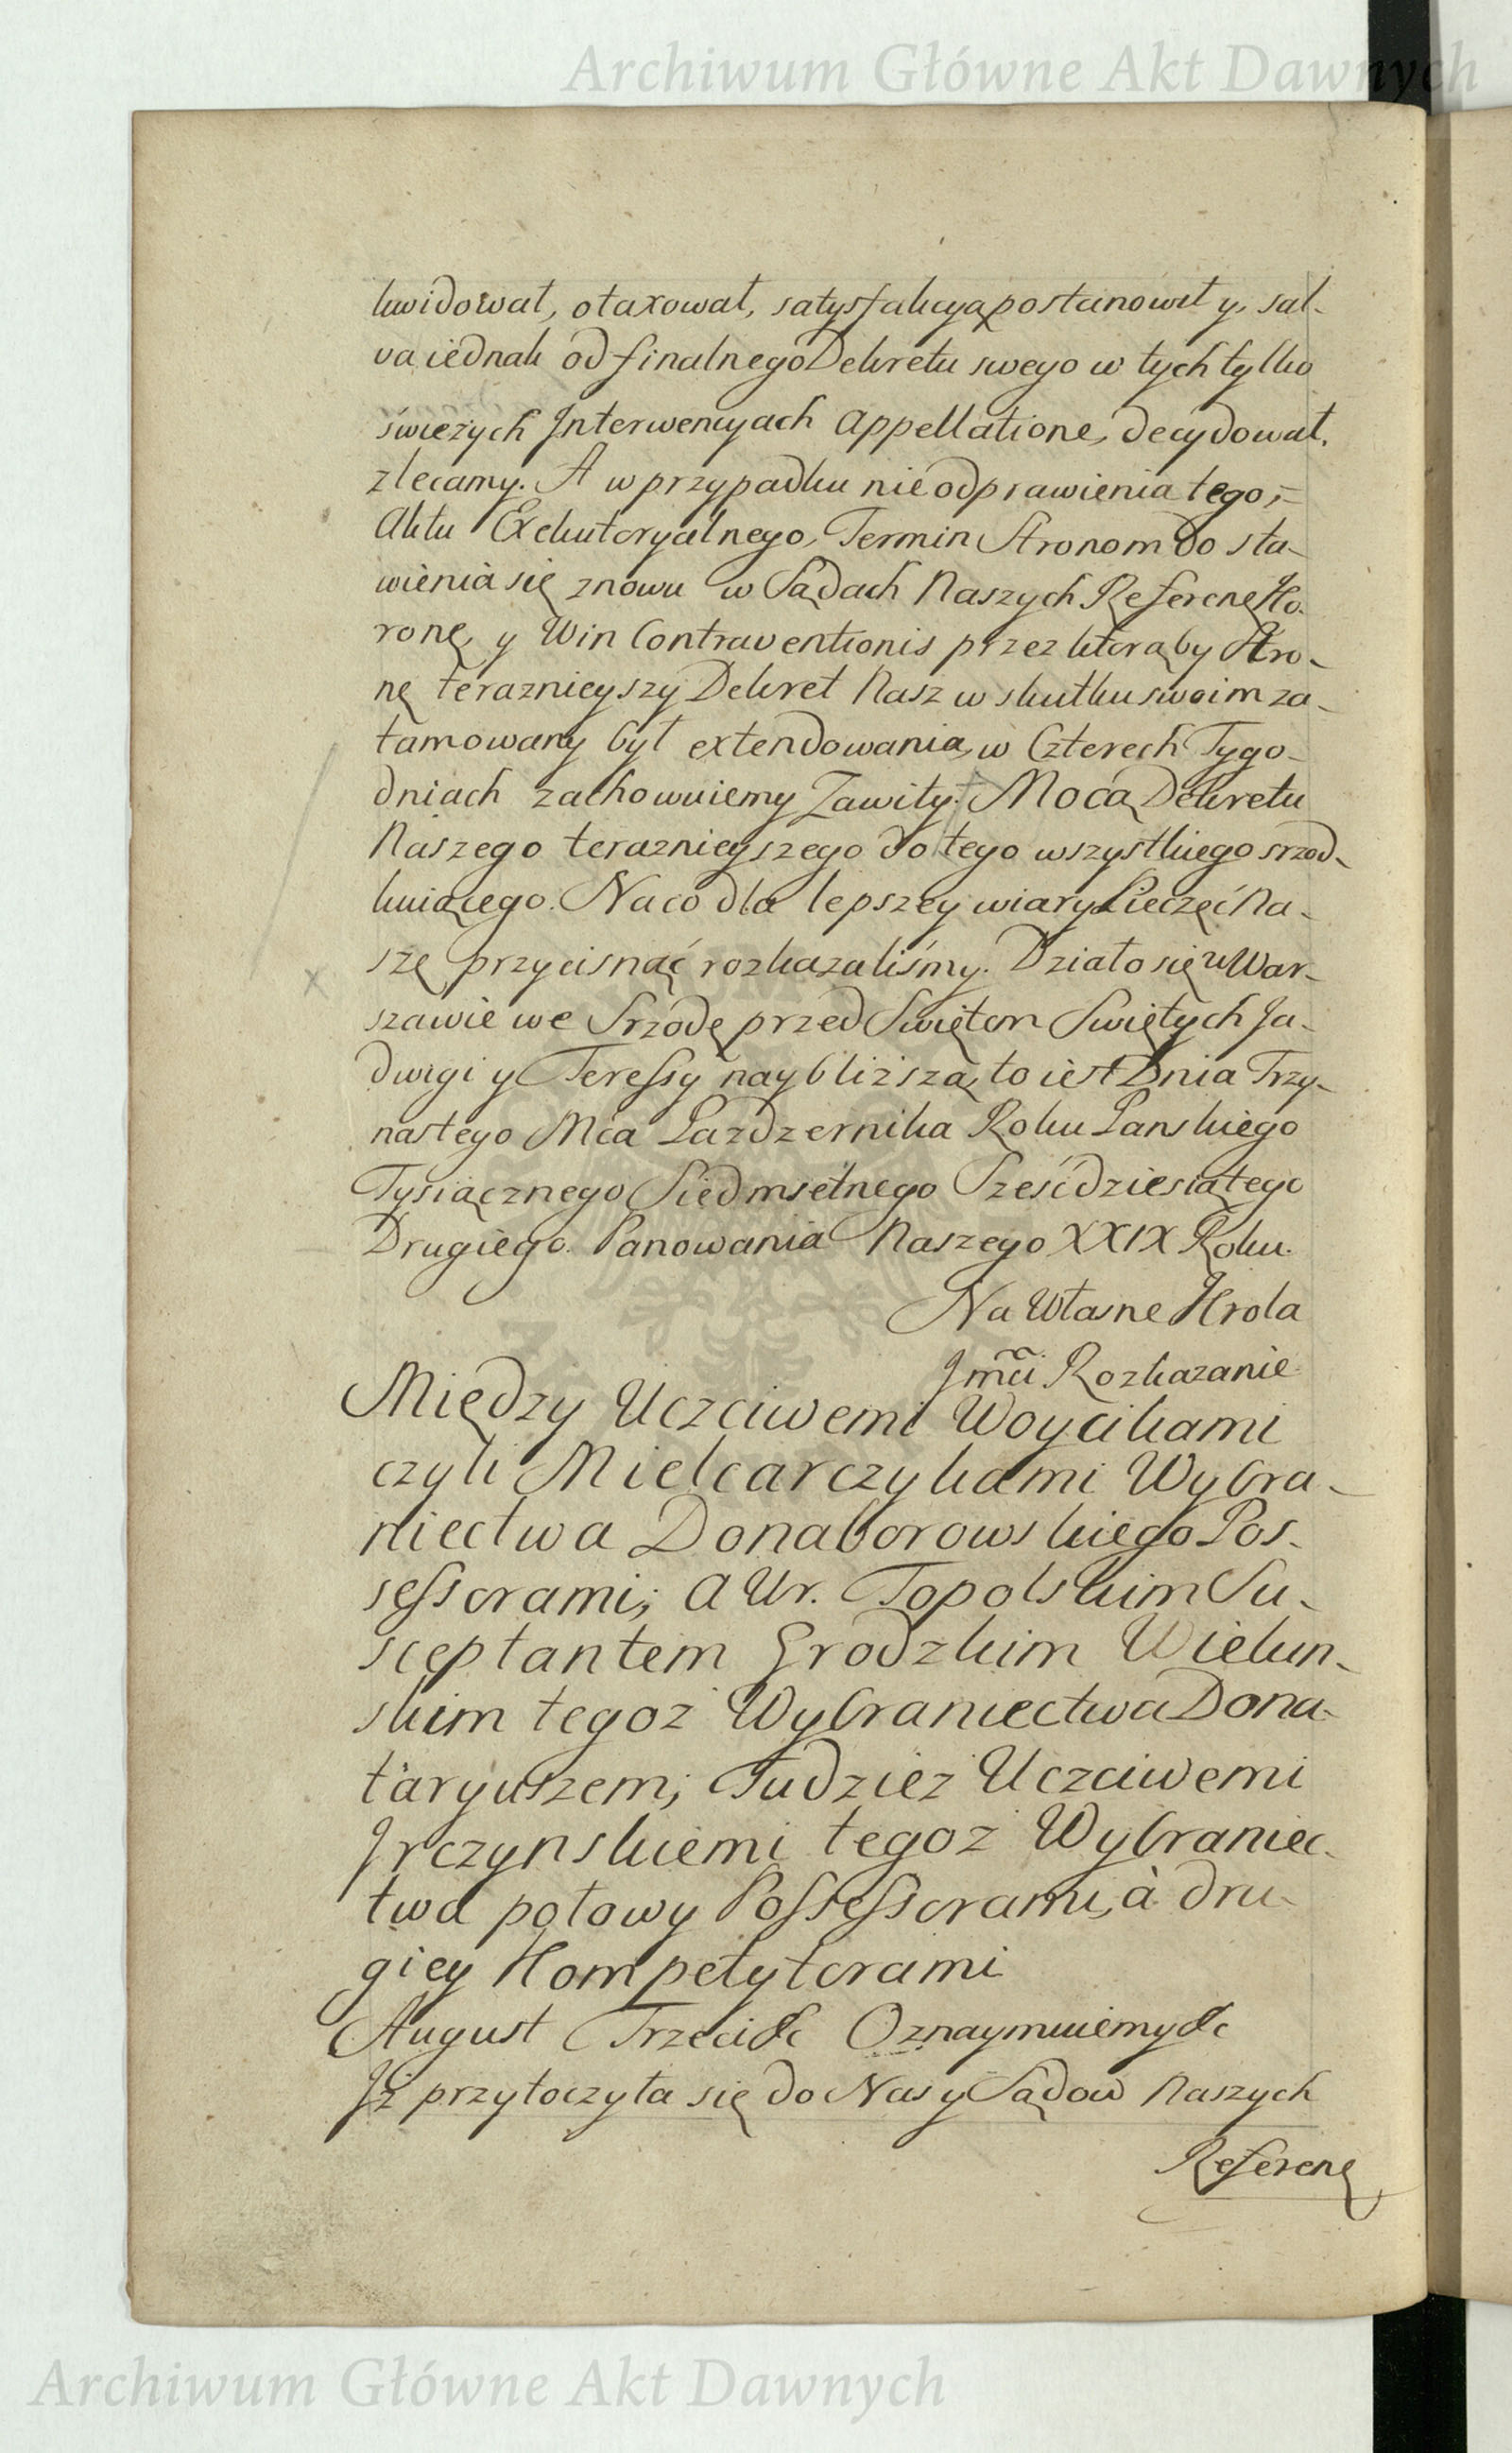 Archiwum Główne Akt Dawnych
kwidował, otaxował, satysfakcyą postanowił y, sal-
va iednak od finalnego Dekretu swego w tych tylko
świeżych Interwencyach Appellatione, decydował,
zlecamy. A w przypadku nie odprawienia tego,
Aktu Exekutoryalnego, Termin Stronom do sta-
wienia się znowu w Sądach Naszych Referenę Ko-
ronę, y Win Contraventionis przez ktorąby Stro-
nę teraznieyszy Dekret Nasz w skutku swoim za-
tamowany był extendowania, w Czterech Tygo-
dniach zachowuiemy Zawity. Mocą Dekretu
Naszego teraznieyszego do tego wszystkiego srzod-
kuiącego. Na co dla lepszey wiary Pieczęć Na-
szę przycisnąć rozkazaliśmy. Działo się w War-
szawie we Srzodę przed Swiętem Swiętych Ja-
dwigi y Teressy naybliższą, to iest Dnia Trzy-
nastego Mca Pazdzernika Roku Panskiego
Tysiącznego Siedmsetnego Sześćdziesiątego
Drugiego. Panowania Naszego XXIX Roku.
Na Własne Krola
Jmći Rozkazanie
Między Uczciwemi Woycikami
czyli Mielcarczykami Wybra-
niectwa Donaborowskiego Pos-
sessorami; a Ur. Topolskim Su-
sceptantem Grodzkim Wielun-
skim tegoż Wybraniectwa Dona-
taryuszem; Tudzież Uczciwemi
Jrczynskiemi tegoż Wybraniec-
twa połowy Possessorami, à dru-
giey Kompetytorami
August Trzeci &c Oznaymuiemy &c
Jż przytoczyła się do Nas y Sądow Naszych
Referenę
Archiwum Główne Akt Dawnych